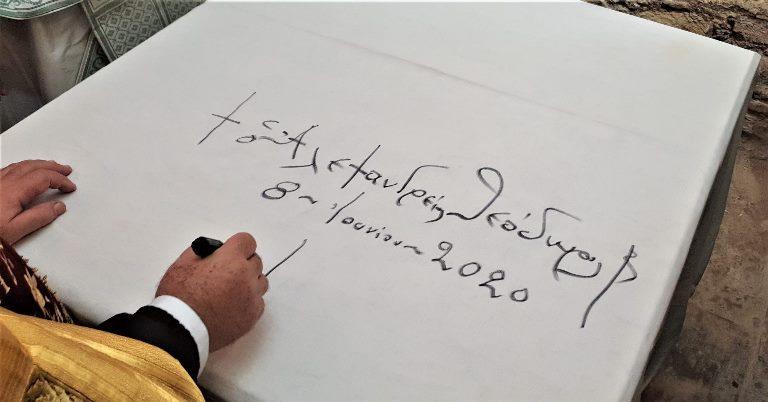 † ὁ Ἀλεξανδρείας Θεόδωρος Β'
8η Ἰουνίου 2020